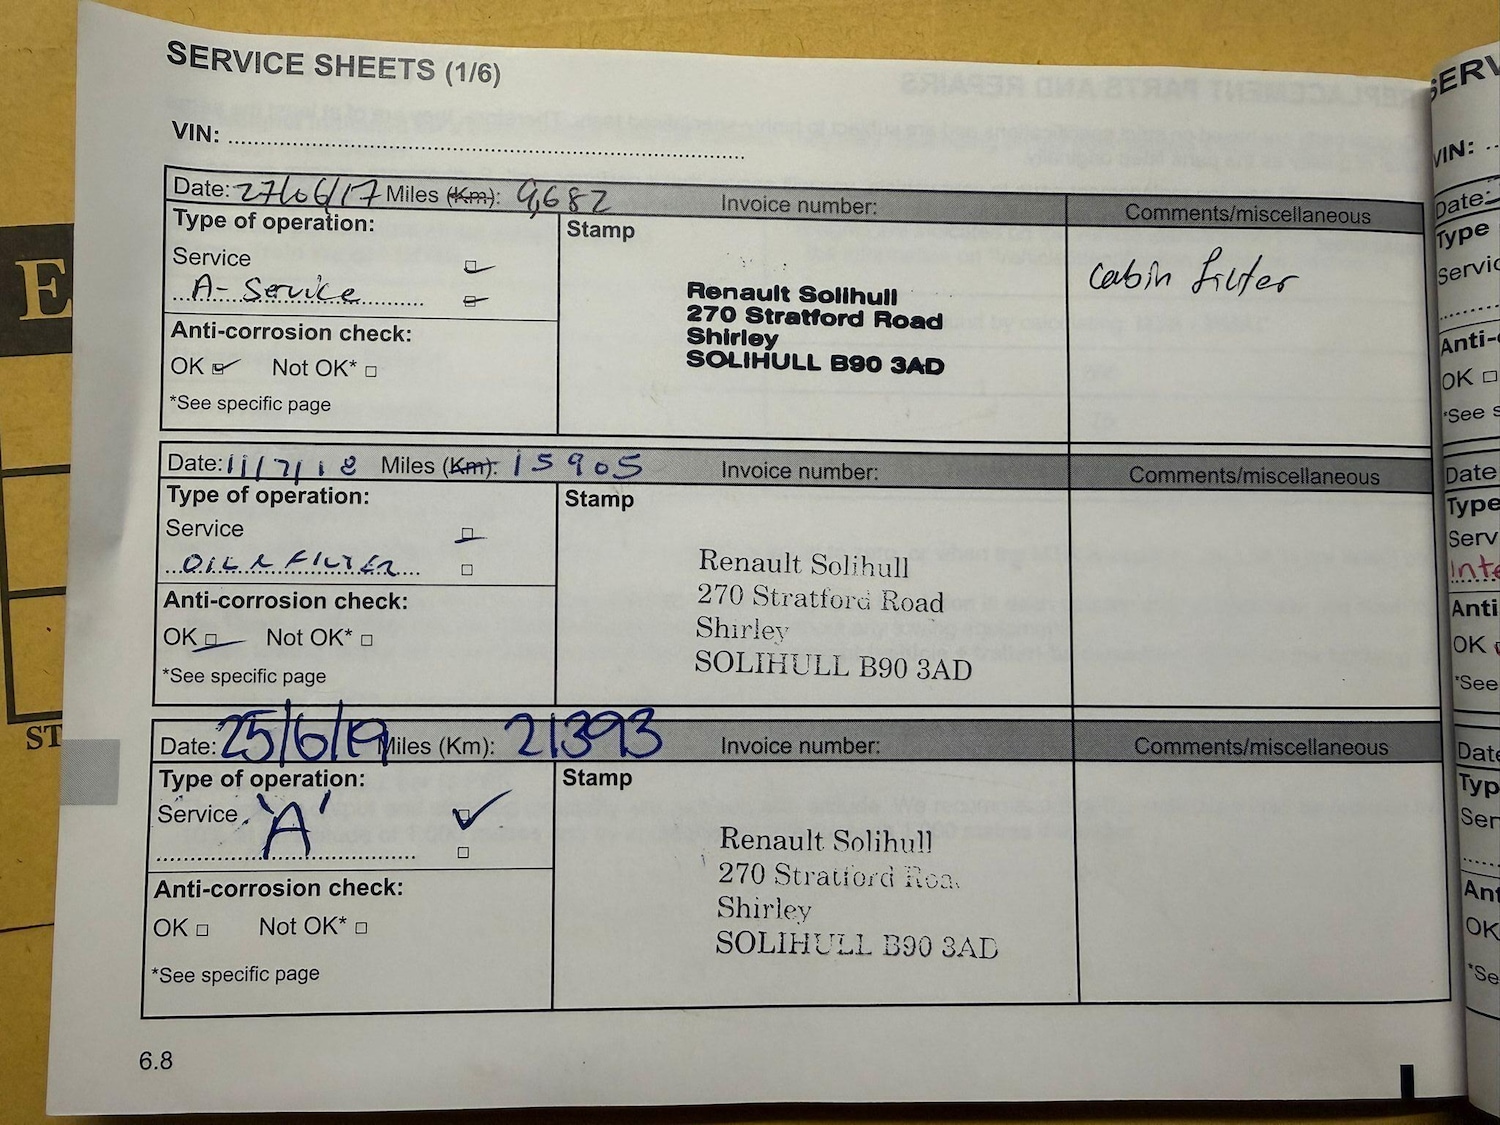 SERVICE SHEETS (1/6)
VIN:
Date: 27/06/17 Miles (Km): 9,682 Invoice number: Comments/miscellaneous
Type of operation: Stamp
Service
A- Service
Cabin filter
Renault Solihull
270 Stratford Road
Shirley
SOLIHULL B90 3AD
Anti-corrosion check:
OK Not OK*
*See specific page
Date: 11/7/18 Miles (Km): 15905 Invoice number: Comments/miscellaneous
Type of operation: Stamp
Service
OIL & FILTER
Renault Solihull
270 Stratford Road
Shirley
SOLIHULL B90 3AD
Anti-corrosion check:
OK Not OK*
*See specific page
Date: 25/6/19 Miles (Km): 21393 Invoice number: Comments/miscellaneous
Type of operation: Stamp
Service 'A'
Renault Solihull
270 Stratford Roa
Shirley
SOLIHULL B90 3AD
Anti-corrosion check:
OK Not OK*
*See specific page
6.8
E
ST
SERV
VIN:
Date:
Type
Servic
Anti-
OK
*See s
Date
Type
Serv
Inte
Anti
OK
*See
Date
Typ
Ser
An
OK
*Se